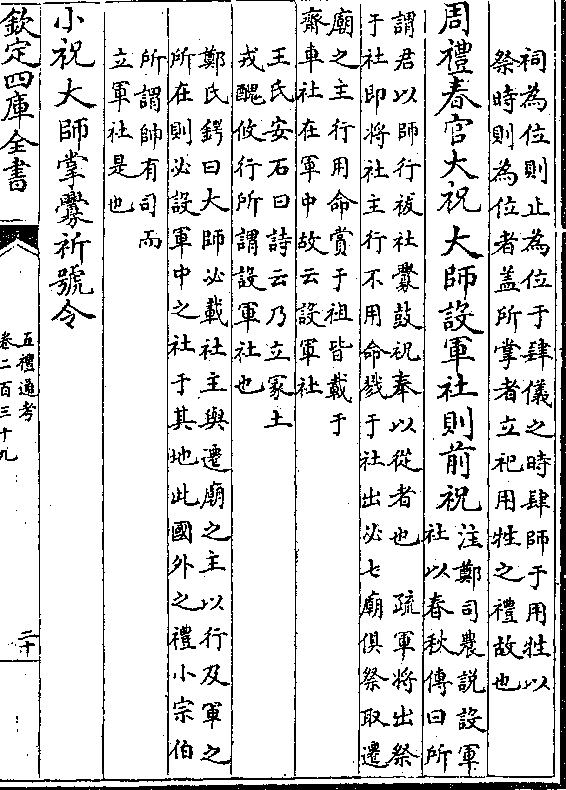 祠為位則止為位于肆儀之時肆師于用牲以
祭時則為位者盖所掌者立祀用牲之禮故也
周禮春官大祝大師設軍社則前祝
注鄭司農説設軍
社以春秋傳曰所
謂君以師行祓社釁鼓祝奉以從者也 疏軍將出祭
于社即將社主行不用命戮于社出必七廟俱祭取遷
廟之主行用命賞于祖皆載于
齋車社在軍中故云設軍社
王氏安石曰詩云乃立冢土
戎醜攸行所謂設軍社也
鄭氏鍔曰大師必載社主與遷廟之主以行及軍之
所在則必設軍中之社于其地此國外之禮小宗伯
所謂帥有司而
立軍社是也
小祝大師掌釁祈號令
欽定四庫全書
五禮通考
卷二百三十九
二十